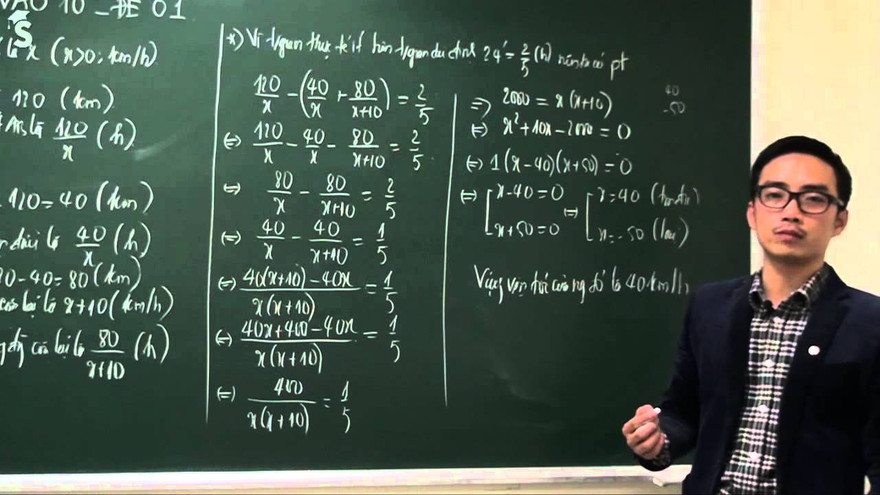 VÀO 10 - ĐỀ 01
S
là x (x>0; km/h)
120 (km)
AB là 120/x (h)
120 = 40 (km)
đầu là 40/x (h)
120 - 40 = 80 (km)
còn lại là x+10 (km/h)
còn lại là 80/(x+10) (h)
*) Vì t/gian thực tế ít hơn t/gian dự định 24' = 2/5 (h) nên ta có pt
120/x - (40/x + 80/(x+10)) = 2/5
⇔ 120/x - 40/x - 80/(x+10) = 2/5
⇔ 80/x - 80/(x+10) = 2/5
⇔ 40/x - 40/(x+10) = 1/5
⇔ (40(x+10) - 40x)/(x(x+10)) = 1/5
⇔ (40x+400-40x)/(x(x+10)) = 1/5
⇔ 400/(x(x+10)) = 1/5
⇒ 2000 = x(x+10)
⇔ x² + 10x - 2000 = 0
⇔ 1(x-40)(x+50) = 0
⇔ [ x-40=0 ⇔ [ x=40 (t/m đk)
x+50=0 x=-50 (loại)
Vậy vận tốc của ng đó là 40 km/h
40
-50